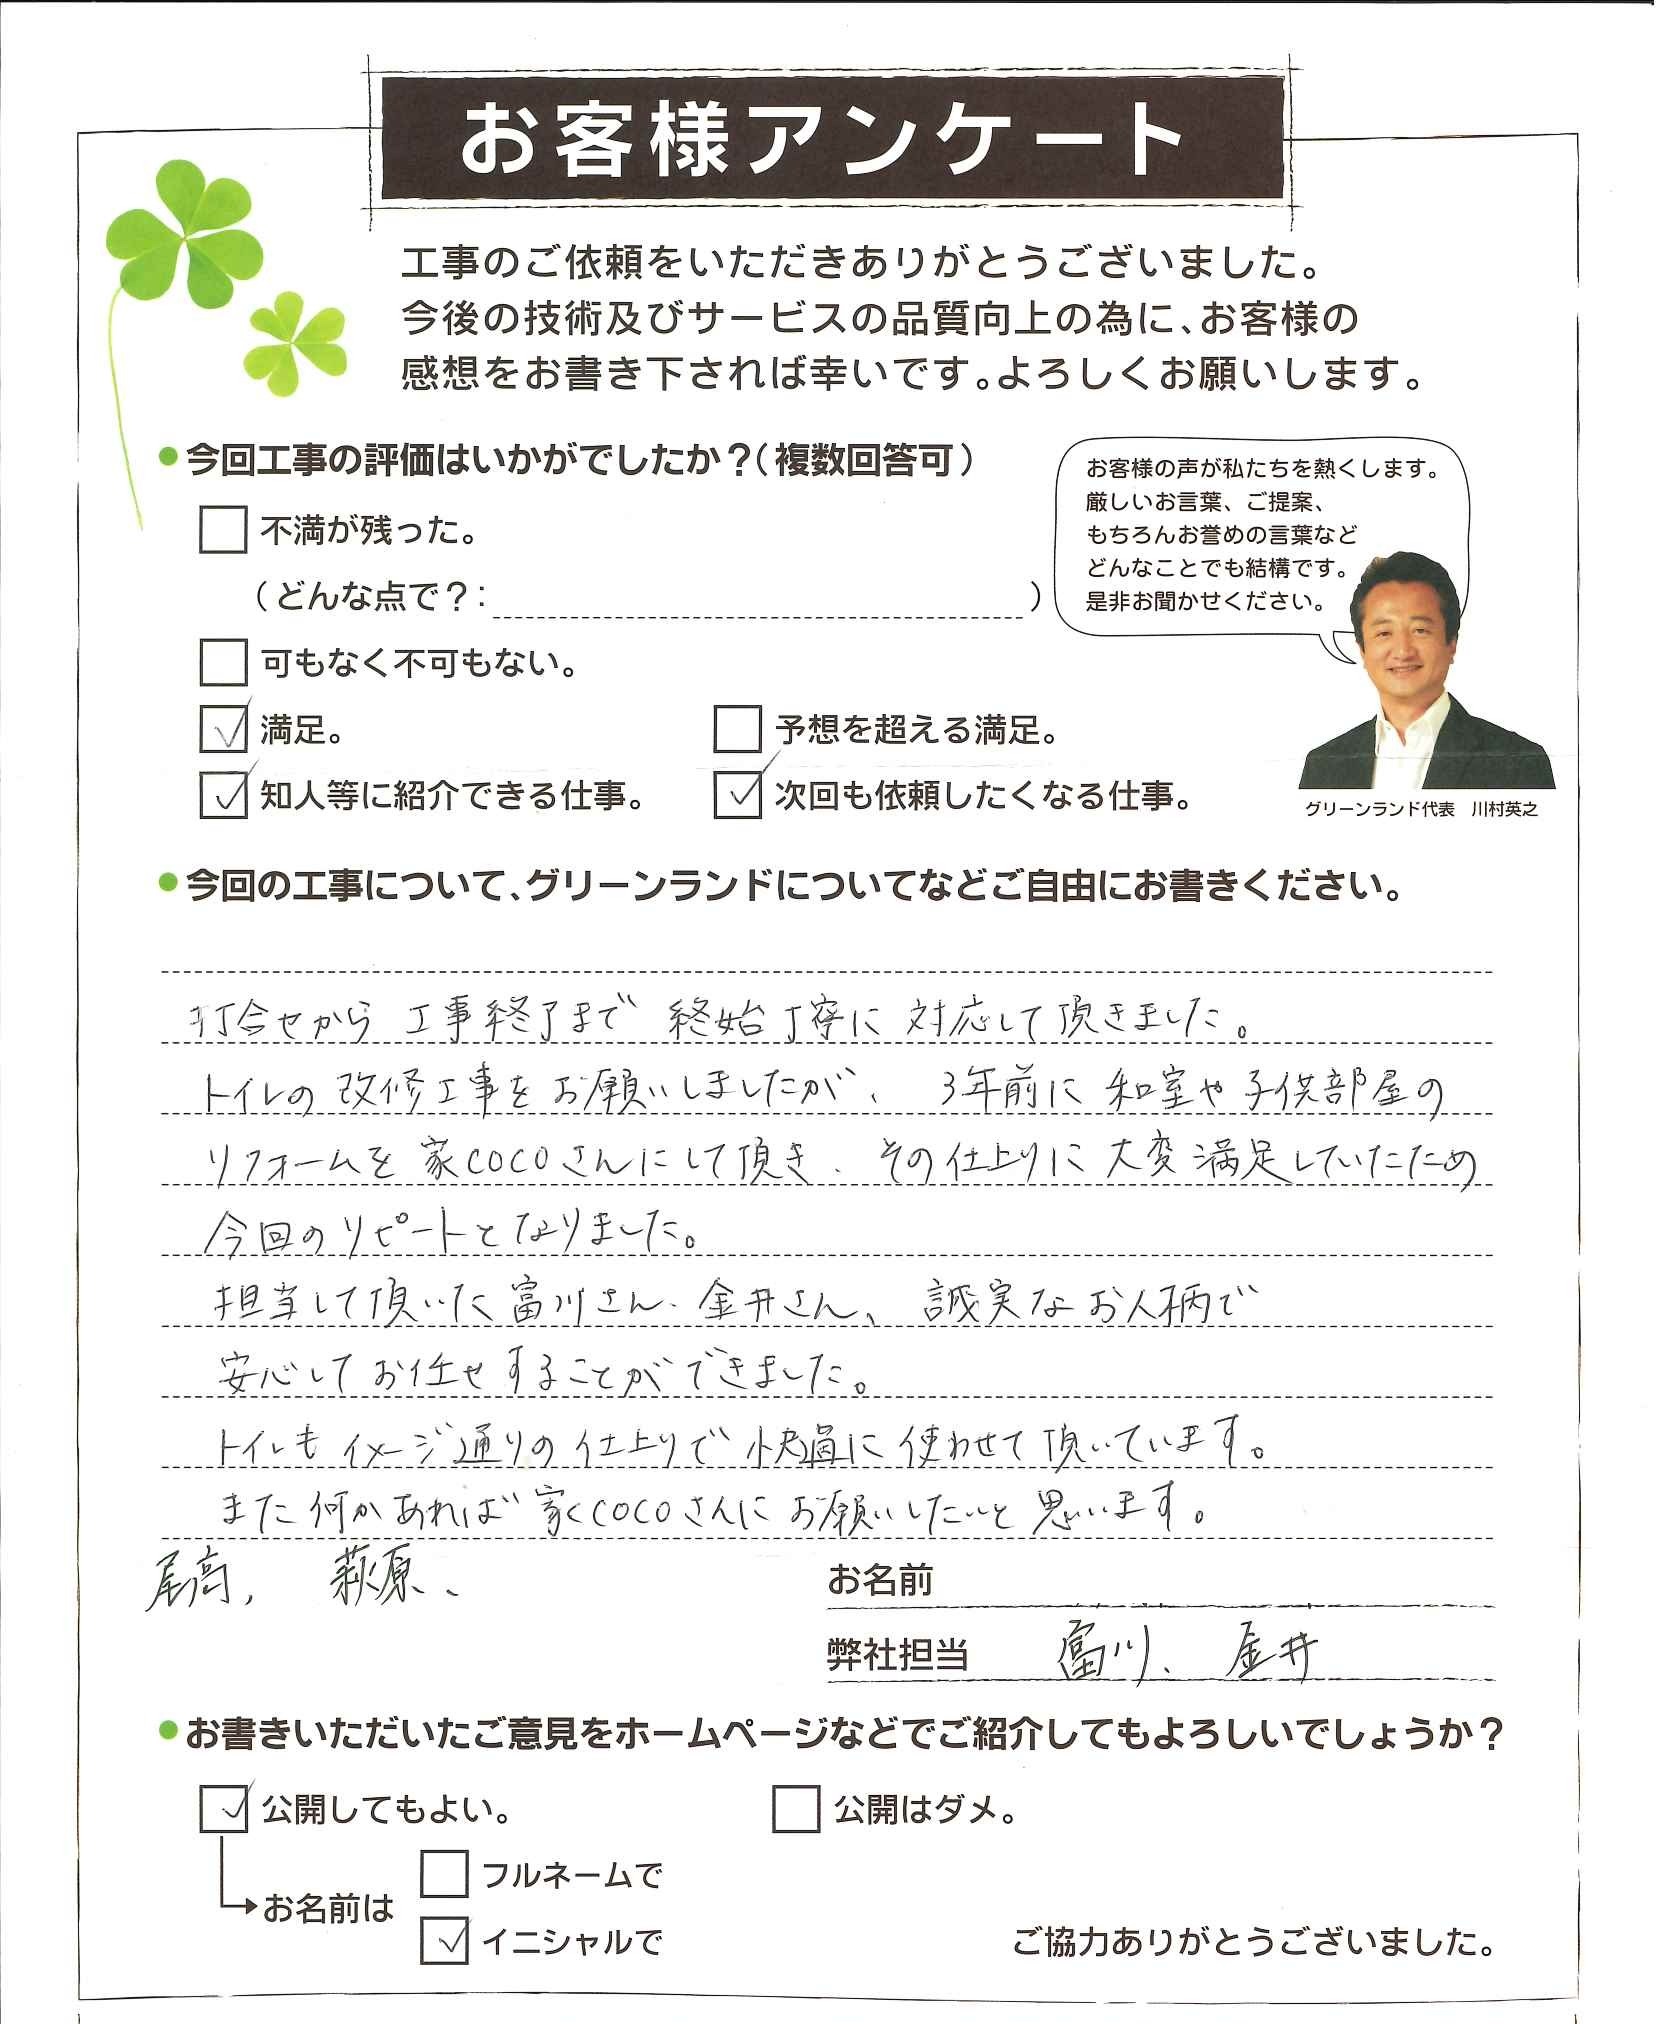 お客様アンケート
工事のご依頼をいただきありがとうございました。
今後の技術及びサービスの品質向上の為に、お客様の
感想をお書き下されば幸いです。よろしくお願いします。
●今回工事の評価はいかがでしたか？（複数回答可）
不満が残った。
（どんな点で？： ）
可もなく不可もない。
満足。 予想を超える満足。
知人等に紹介できる仕事。 次回も依頼したくなる仕事。
お客様の声が私たちを熱くします。
厳しいお言葉、ご提案、
もちろんお誉めの言葉など
どんなことでも結構です。
是非お聞かせください。
グリーンランド代表 川村英之
●今回の工事について、グリーンランドについてなどご自由にお書きください。
打合せから 工事終了まで 終始丁寧に 対応して頂きました。
トイレの 改修工事を お願いしましたが、 3年前に 和室や子供部屋の
リフォームを 家COCOさんにして頂き、その仕上りに 大変満足していたため
今回のリピートとなりました。
担当して頂いた 富川さん、金井さん、 誠実なお人柄で
安心してお任せすることができました。
トイレもイメージ通りの仕上りで 快適に 使わせて頂いています。
また何かあれば 家COCOさんに お願いしたいと思います。
尾高、 萩原、
お名前
弊社担当 富川、 金井
●お書きいただいたご意見をホームページなどでご紹介してもよろしいでしょうか？
公開してもよい。 公開はダメ。
お名前は
フルネームで
イニシャルで
ご協力ありがとうございました。